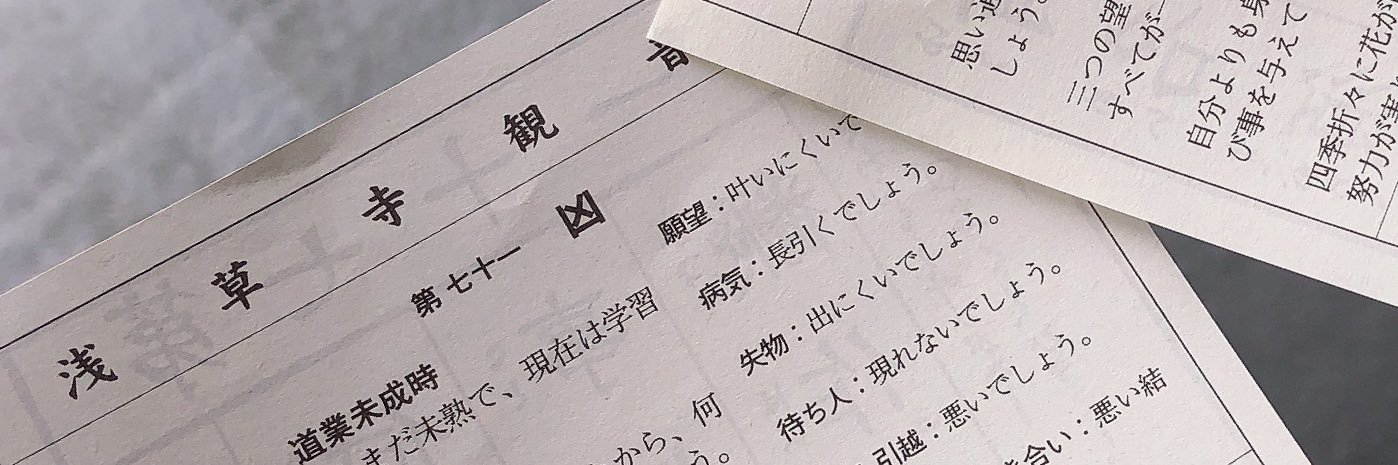 浅草寺観音
第七十一 凶
道業未成時
まだ未熟で、現在は学習
から、何
う。
願望：叶いにくいで
病気：長引くでしょう。
失物：出にくいでしょう。
待ち人：現れないでしょう。
引越：悪いでしょう。
き合い：悪い結
思い通
しょう。
三つの望
すべてが一
自分よりも身
び事を与えて
四季折々に花が
努力が実